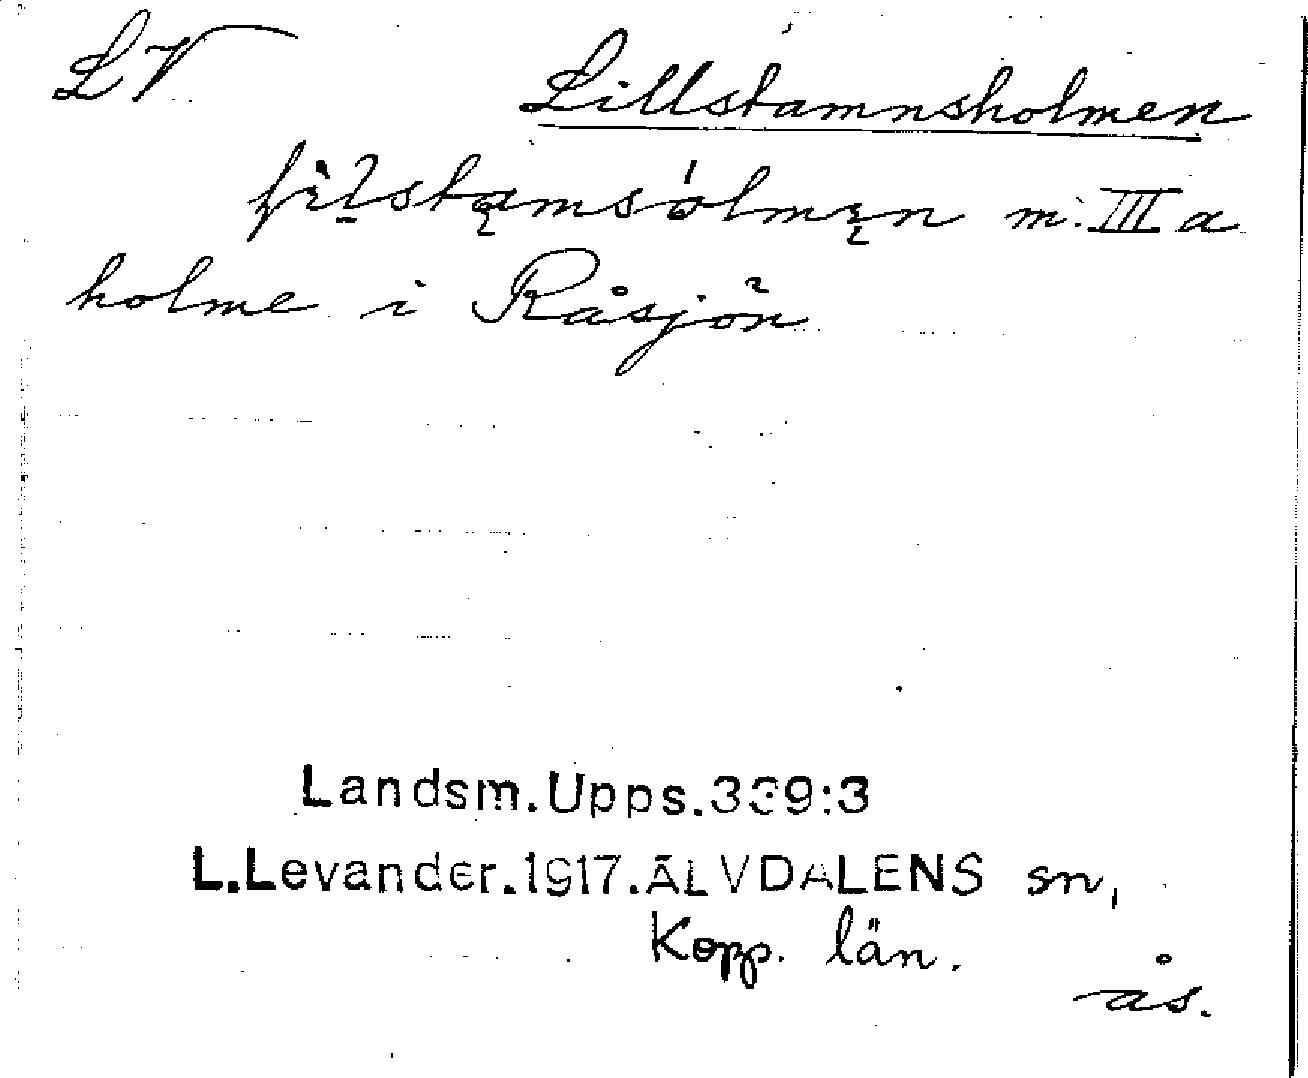 LV Lillstamnsholmen
m. III a
holme i Råsjön
Landsm.Upps.339:3
L.Levander.1917.ÄLVDALENS sn,
Kopp. län.
ås.